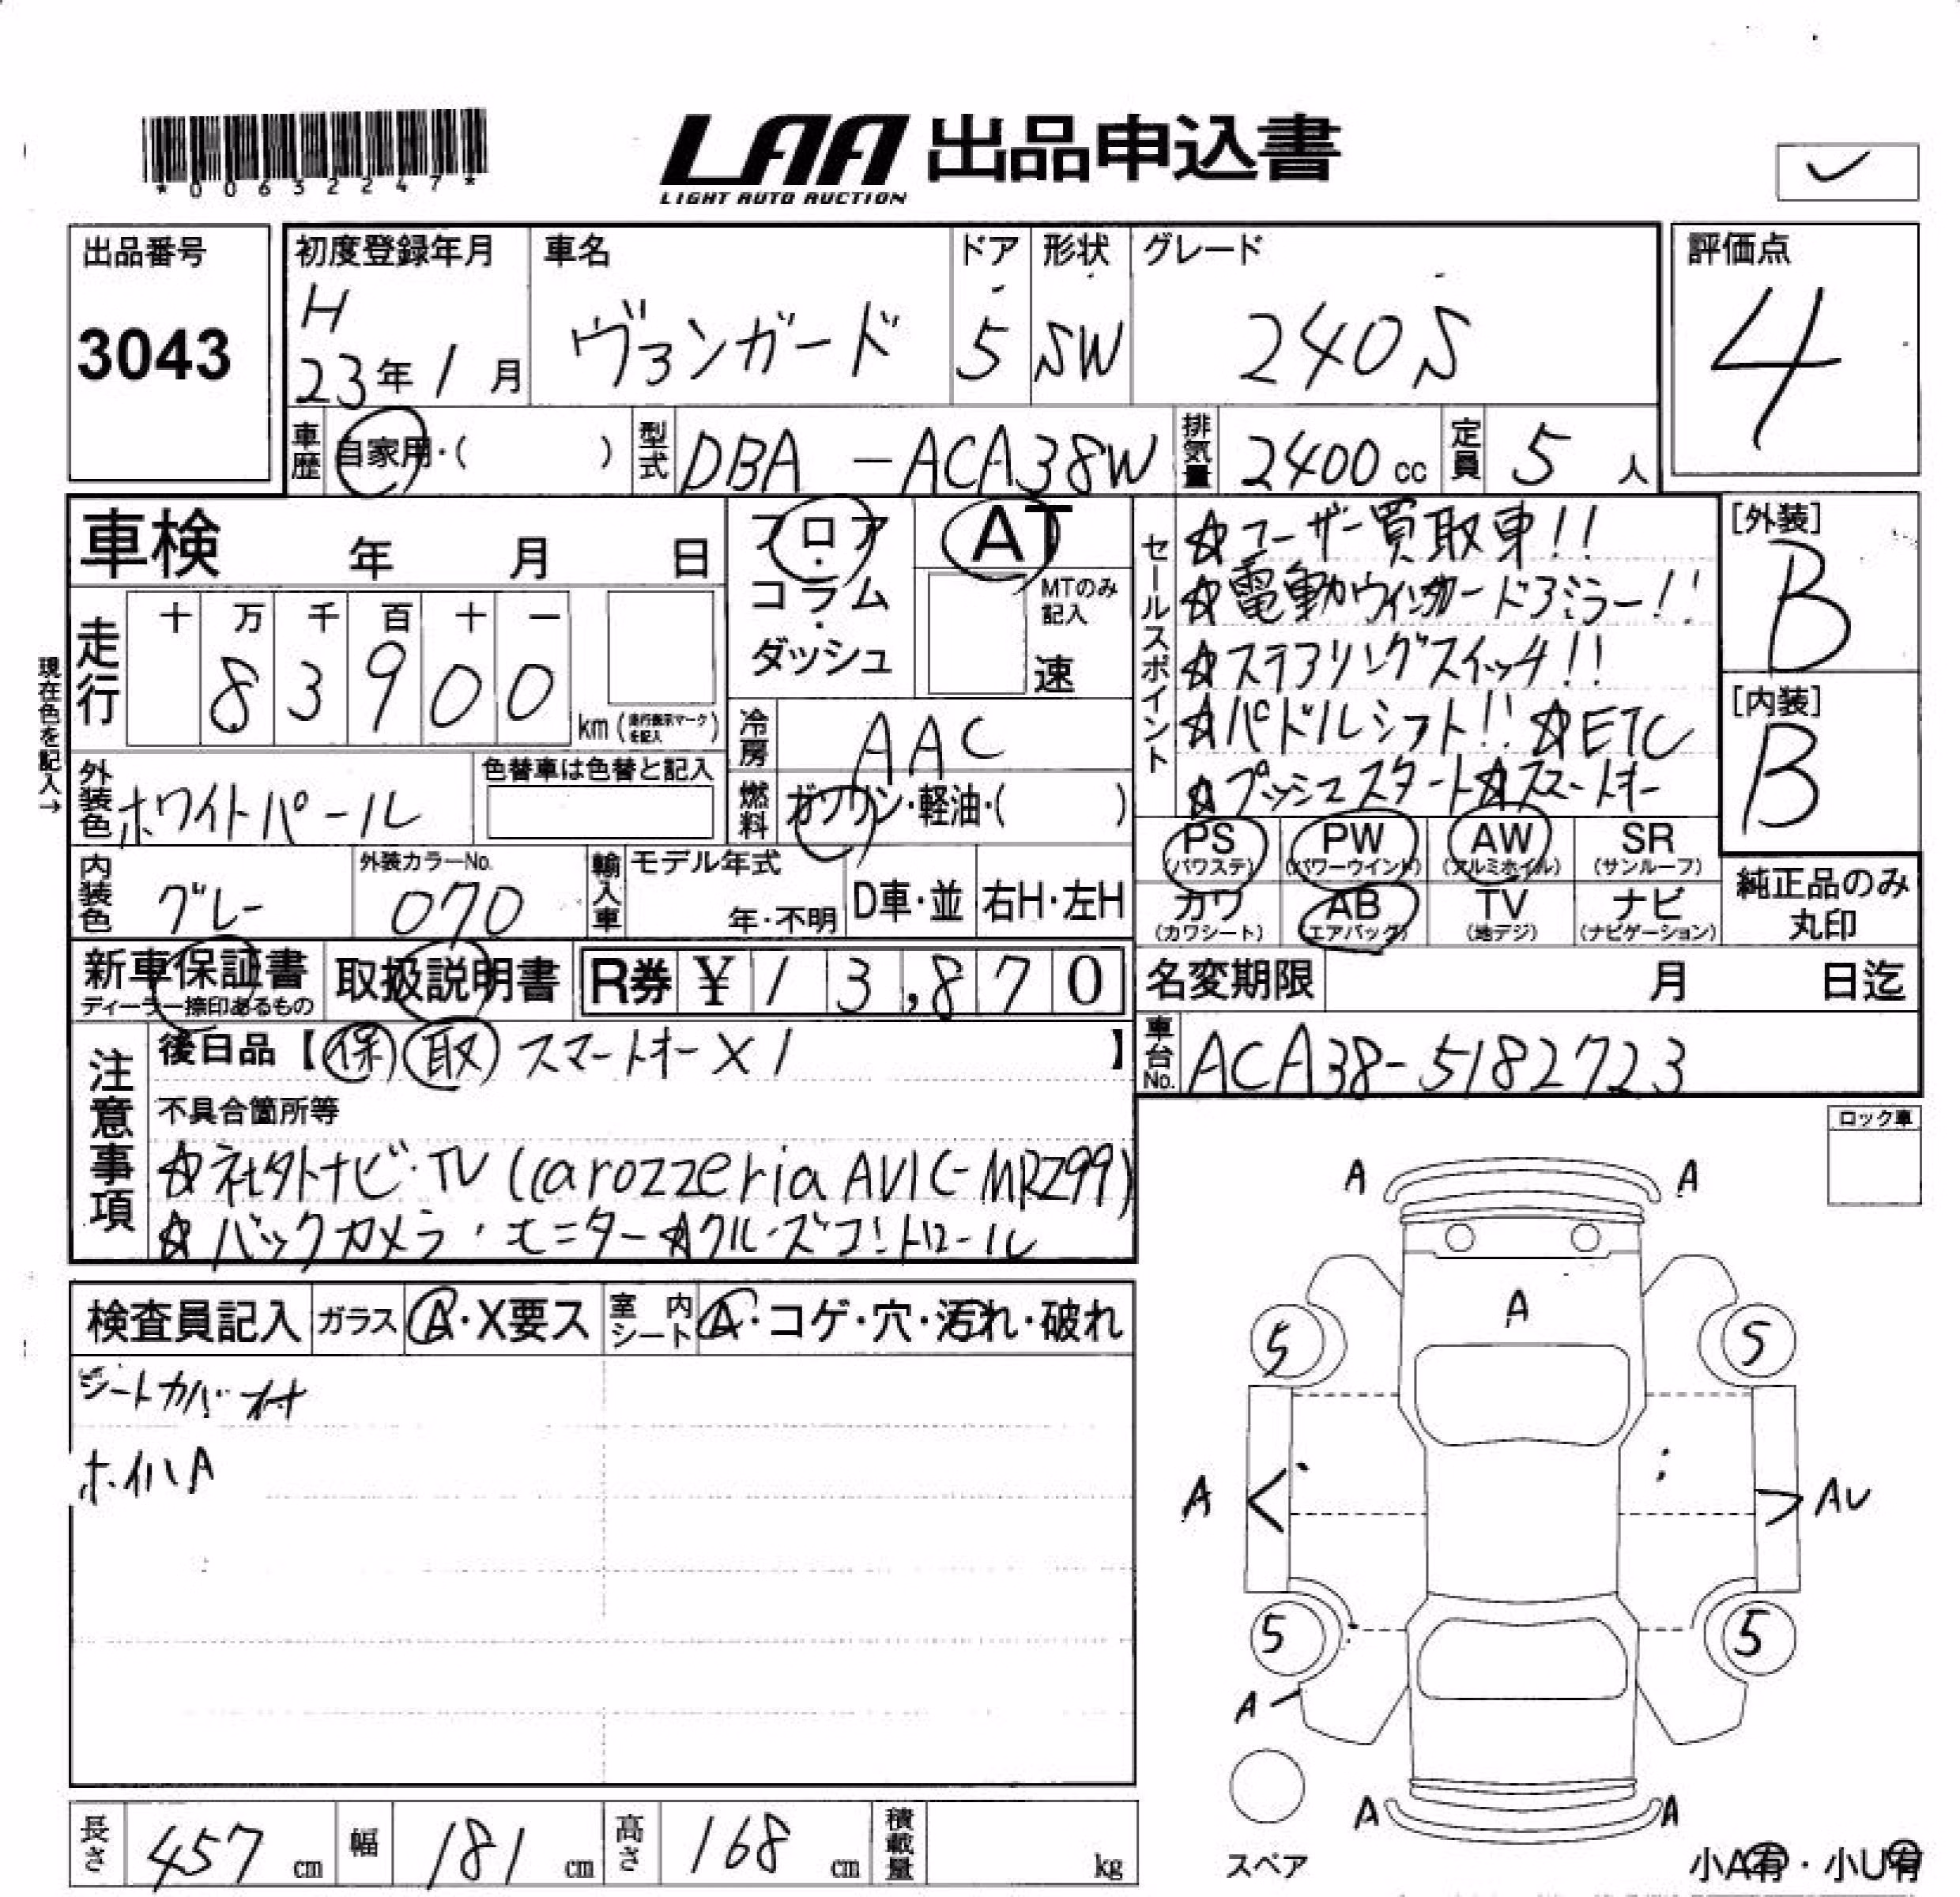 *00632247*
LAA 出品申込書
LIGHT AUTO AUCTION
出品番号
3043
初度登録年月 車名 ドア 形状 グレード 評価点
H 23年1月 ヴァンガード 5 SW 240S 4
車歴 自家用・( ) 型式 DBA-ACA38W 排気量 2400cc 定員 5人
車検 年 月 日
フロア・コラム・ダッシュ
AT
MTのみ記入
速
セールスポイント
☆ユーザー買取車!!
☆電動ウィンカードアミラー!!
☆ステアリングスイッチ!!
☆パドルシフト!! ☆ETC
☆プッシュスタート☆スマートキー
[外装]
B
[内装]
B
現在色を記入→
走行 十 万 千 百 十 一
83900 km (走行表示マークを記入)
冷房 AAC
外装色 ホワイトパール 色替車は色替と記入
燃料 ガソリン・軽油・( )
内装色 グレー 外装カラーNo. 070 輸入車 モデル年式 年・不明 D車・並 右H・左H
PS (パワステ) PW (パワーウインド) AW (アルミホイル) SR (サンルーフ)
カワ (カワシート) AB (エアバッグ) TV (地デジ) ナビ (ナビゲーション)
純正品のみ丸印
新車保証書 ディーラー捺印あるもの 取扱説明書 R券 ¥13,870
名変期限 月 日迄
車台No. ACA38-5182723
注意事項
後日品【保 取 スマートキー×1 】
不具合箇所等
☆社外ナビ・TV (carozzeria AVIC-MRZ99)
☆バックカメラ・モニター☆クルーズコントロール
ロック車
検査員記入 ガラス A・X要ス 室内シート A・コゲ・穴・汚れ・破れ
シートカバー付
ホイルA
A A
A
5 5
A AU
5 5
A
A A
スペア
小A有・小U有
長さ 457cm 幅 181cm 高さ 168cm 積載量 kg